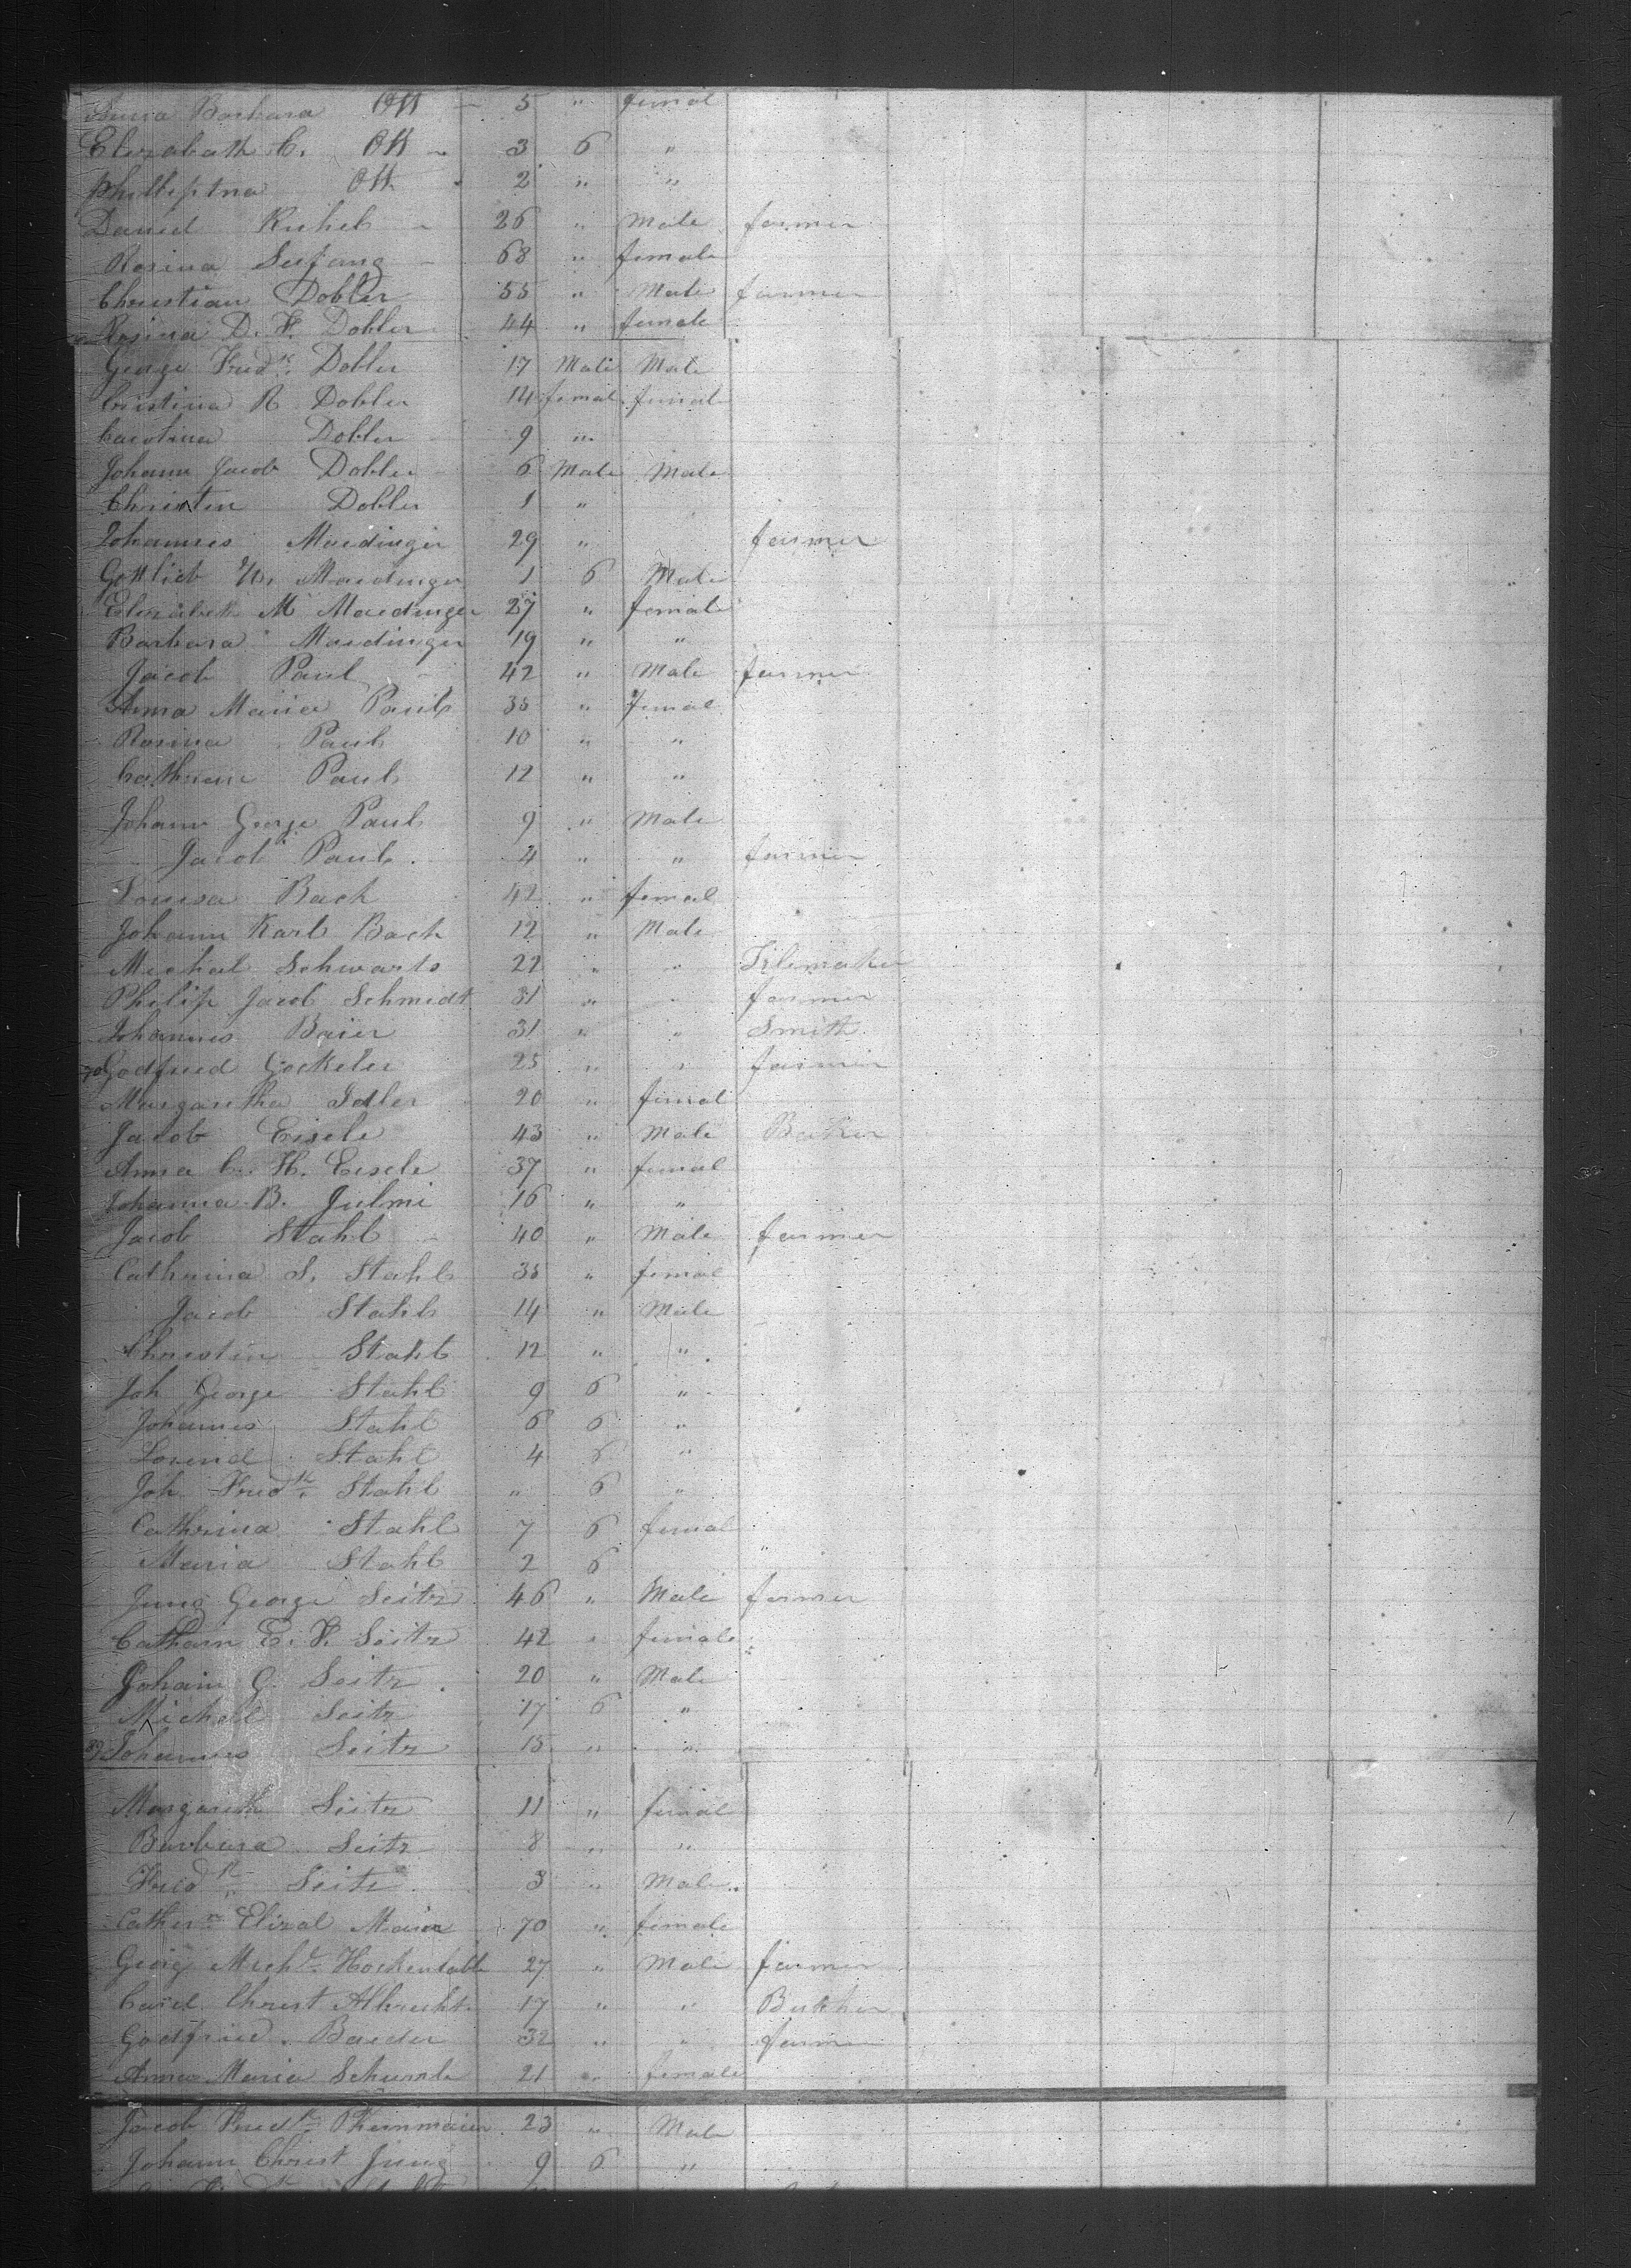 Anna Barbara Ott - 5 " femal
Elizabath C. Ott - 3 6 "
Ott - 2 " "
Daniel - 26 " Male farmer
Rosina - 68 " female
Christian Dobler 55 " Male farmer
Rosina D. F. Dobler 44 " female
George Fredk. Dobler 17 Male Male
Cristina R Dobler 14 femal female
Carolina Dobler 9 "
Johann Jacob Dobler 6 Male Male
Christin Dobler 1 "
Johannes Maedinger 29 " farmer
Gottlieb Maedinger 1 6 Male
Elizabeth M Maedinger 27 " female
Barbara Maedinger 19 " "
Jacob Paul - 42 " Male farmer
Anna Maria Paul 35 " femal
Rosina Paul 10 " "
Cathrein Paul 12 " "
Johann George Paul 9 " Male
Jacob Paul 4 " " farmer
Louisa Bach 42 " femal
Johann Karl Bach 12 " Male
Michal Schwarts 22 " " Tilemaker
Philip Jacob Schmidt 31 " " farmer
Johannes Baier 31 " " Smith
Godfried Gockeler 25 " " farmer
Margaretha Idler 20 " femal
Jacob Eisele 43 " Male Baker
Anna C. H. Eisele 37 " femal
Johanna B. Julmi 16 " "
Jacob Stahl - 40 " Male farmer
Cathrina S. Stahl 35 " femal
Jacob Stahl 14 " Male
Christin Stahl 12 " "
Joh George Stahl 9 6 "
Johannes Stahl 6 6 "
Stahl 4 6 "
Joh Fredk. Stahl " 6 "
Cathrina Stahl 7 6 femal
Maria Stahl 2 6
Jung George Seitz 46 " Male farmer
Catharn E. F. Seitz 42 " female
Johann G. Seitz 20 " Male
Michael Seitz 17 6 "
Johannes Seitz 15 " "
Margareth Seitz 11 " femal
Barbara Seitz 8 " "
Fredk Seitz 3 " Male
Cathern Elizal Maier 70 " female
Georg Michl. 27 " Male farmer
Carl Christ Albrecht 17 " " Butcher
Godfried Baeder 32 " " farmer
Anna Maria 21 " female
Jacob Fredk 23 " Male
Johann Christ Jung 9 6 "